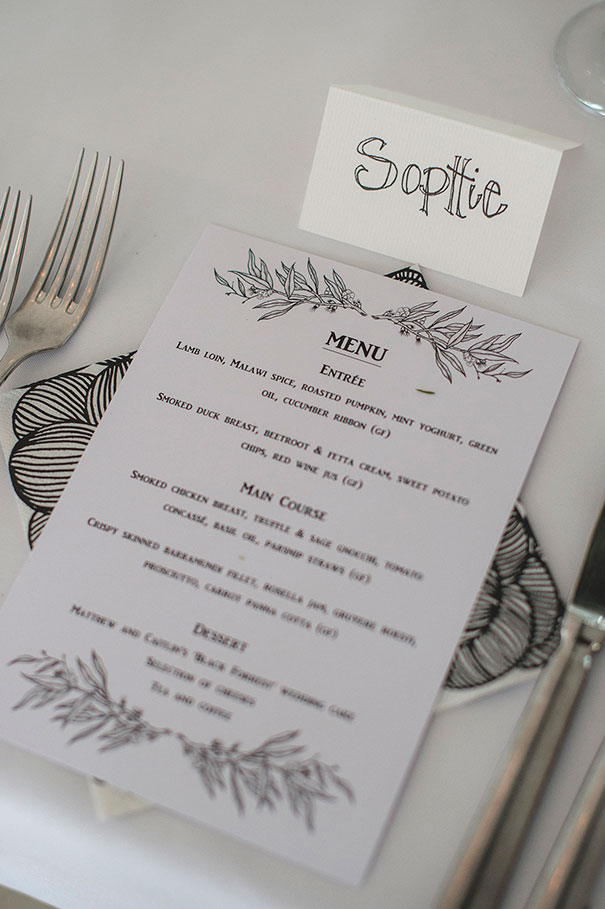 Sophie
MENU
Entrée
Lamb loin, Malawi spice, roasted pumpkin, mint yoghurt, green
oil, cucumber ribbon (gf)
Smoked duck breast, beetroot & fetta cream, sweet potato
chips, red wine jus (gf)
Main Course
Smoked chicken breast, truffle & sage gnocchi, tomato
concassé, basil oil, parsnip straws (gf)
Crispy skinned barramundi fillet, rosella jam, gruyere,
prosciutto, carrot panna cotta (gf)
Dessert
Matthew and Caitlin's 'Black Forrest' wedding cake
Selection of cheeses
Tea and coffee